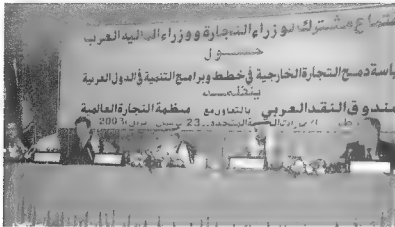 اجتماع مشترك لوزراء التجارة ووزراء المالية العرب
حـــول
سياسة دمج التجارة الخارجية في خطط وبرامج التنمية في الدول العربية
ينظمه
صندوق النقد العربي بالتعاون مع منظمة التجارة العالمية
المتحدة 23